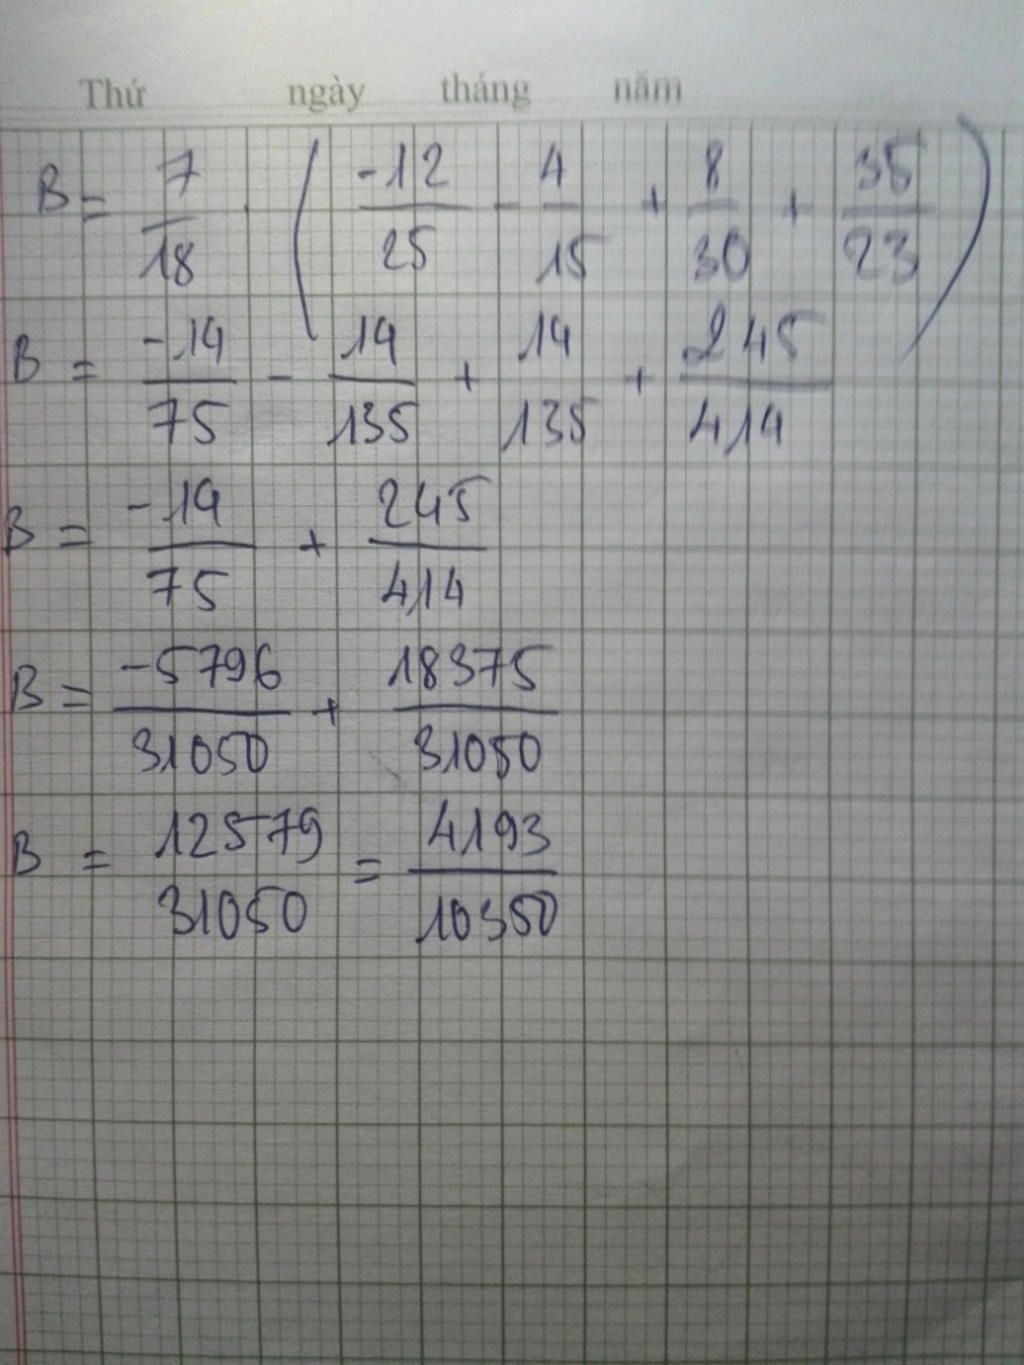 Thứ ngày tháng năm
B = 7/18 . ( -12/25 - 4/15 + 8/30 + 35/23 )
B = -14/75 - 14/135 + 14/135 + 245/414
B = -14/75 + 245/414
B = -5796/31050 + 18375/31050
B = 12579/31050 = 4193/10350